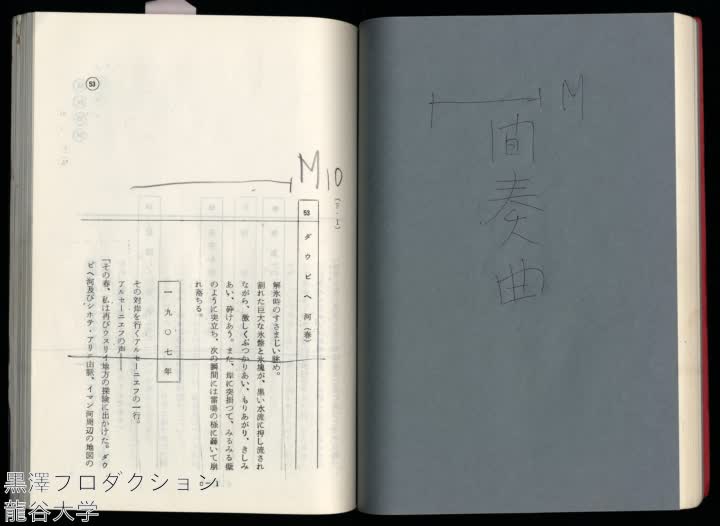 M
間奏曲
M10
53 ダウビヘ河(春)
解氷時のすさまじい眺め。
割れた巨大な氷盤と氷塊が、黒い水流に押し流され
ながら、激しくぶつかりあい、もりあがり、きしみ
あい、砕けあう。また、岸に突掛つて、みるみる櫓
のように突立ち、次の瞬間には雷鳴の様に轟いて崩
れ落ちる。
一九〇七年
その対岸を行くアルセーニエフの一行。
アルセーニエフの声――
「その春、私は再びウスリイ地方の探険に出かけた。ダウ
ビヘ河及びシホテ・アリニ山脈、イマン河周辺の地図の
53
黒澤プロダクション
龍谷大学